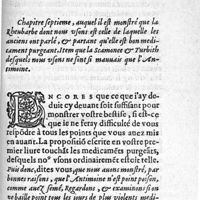 Chapitre septieme, auquel il est monstré que la
Rheubarbe dont nous vsons est celle de laquelle les
anciens ont parlé, & partant qu'elle est bon medi-
cament purgeant. Item que la Scamonee & Turbith
desquels nous vsons ne sont si mauuais que l'An-
timoine.
ENCORES que ce que i'ay de-
duit cy deuant soit suffisant pour
monstrer vostre bestise, si est-ce
que il ne seray difficulté de vous
respódre à tous les points que vous auez mis
en auant. La propositió escrite en vostre pre-
mier liure touchát les medicamés purgetifs,
desquels no⁹ vsons ordinairemét est telle.
Puis donc, dites vous, que nous auons monstré, par
bonnes raisons, que l'Antimoine n'est point poison,
comme auez semé, Regardons, & examinons si on
ne baille point tous les iours de plus violents medi-